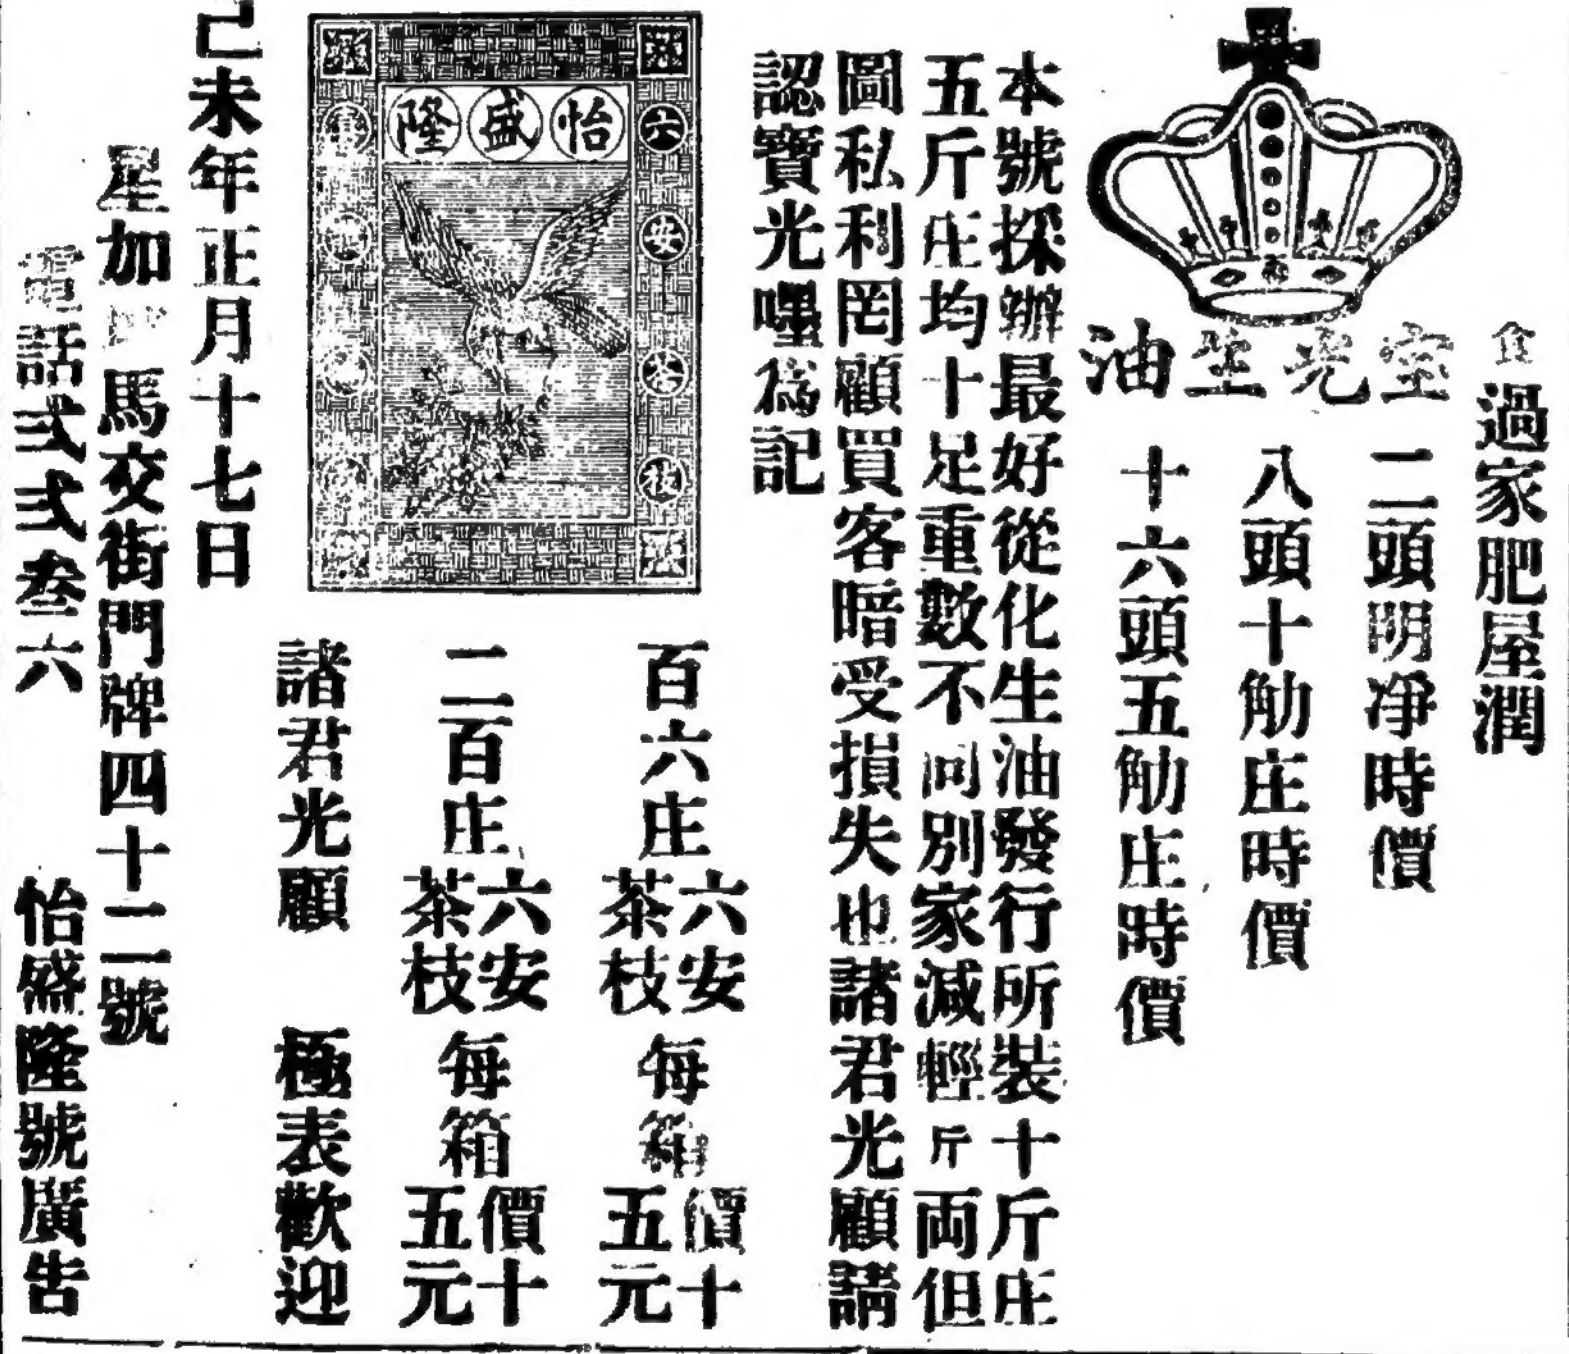 食過家肥屋潤
油
二頭明凈時價
八頭十觔庄時價
十六頭五觔庄時價
本號採辦最好從化生油發行所裝十斤庄
五斤庄均十足重數不同別家減輕斤両但
圖私利罔顧買客暗受損失也諸君光顧請
認寶光嘜為記
怡盛隆
六安茶枝
百六庄六安茶枝每箱價十五元
二百庄六安茶枝每箱價十五元
諸君光顧 極表歡迎
己未年正月十七日
星加 馬交街門牌四十二號
電話弍弍叁六 怡盛隆號廣告